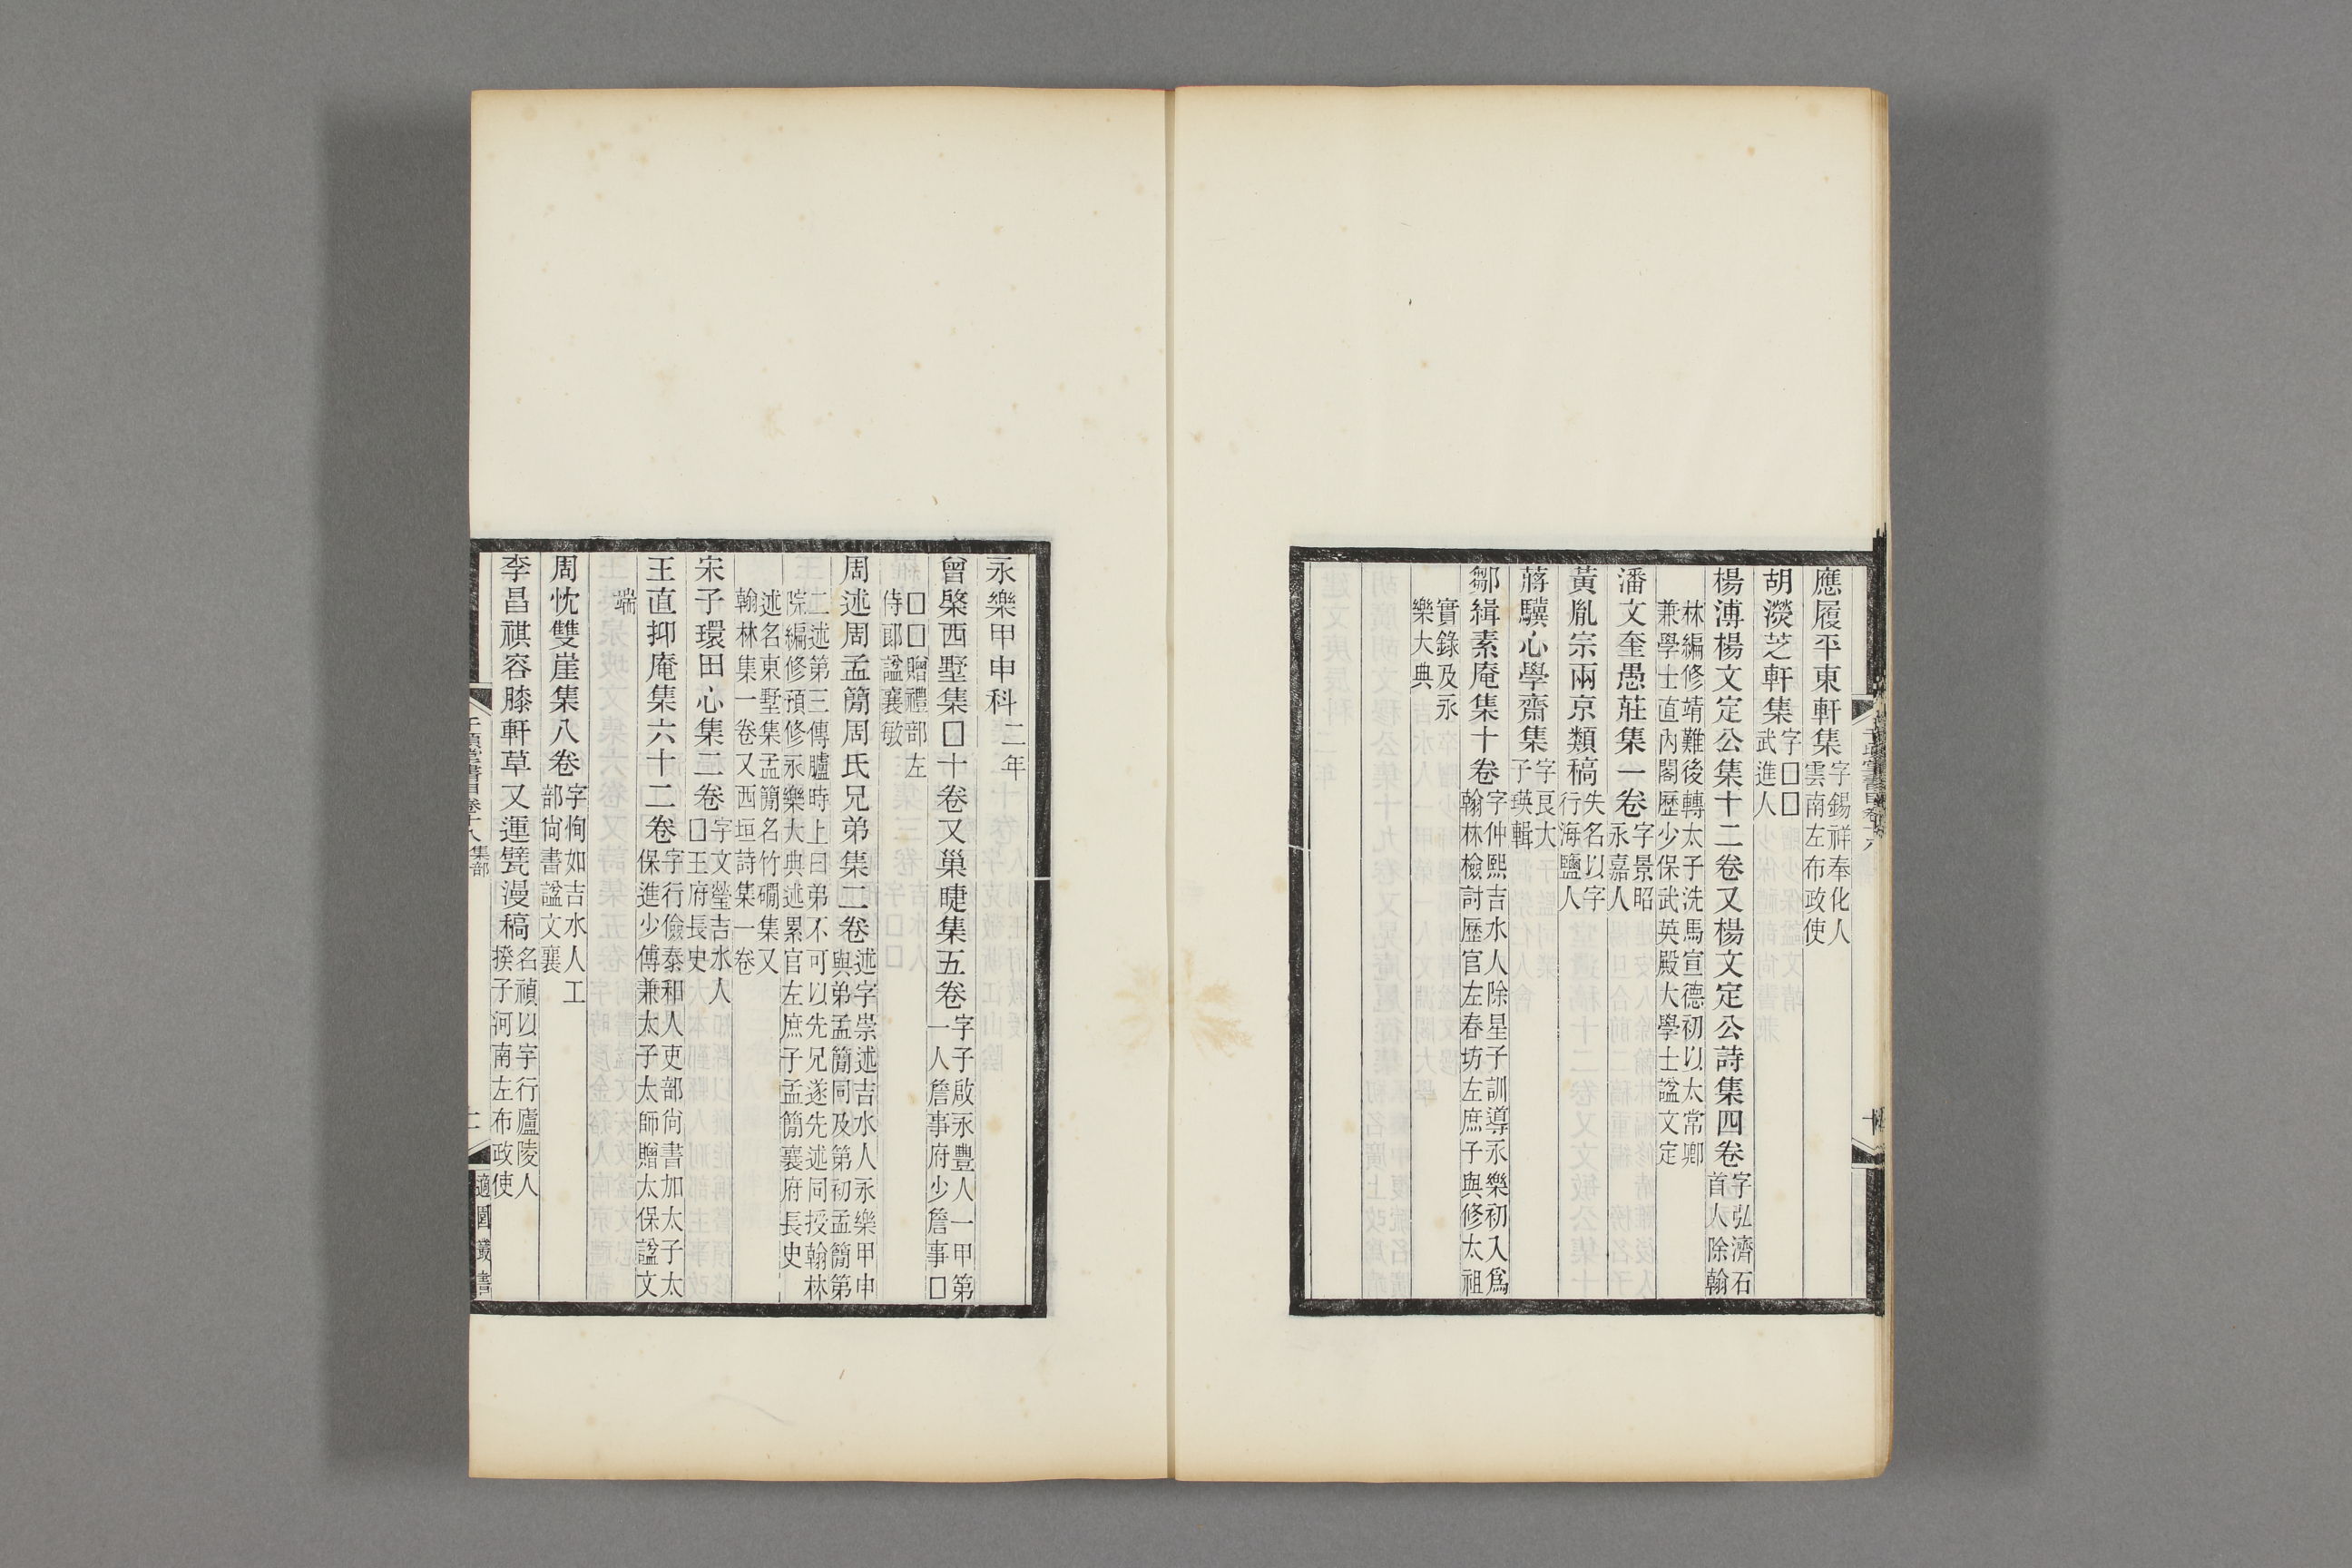 應履平東軒集字錫祥奉化人雲南左布政使
胡濙芝軒集字□□武進人
楊溥楊文定公集十二卷又楊文定公詩集四卷字弘濟石首人除翰
林編修靖難後轉太子洗馬宣德初以太常卿兼學士直內閣歷少保武英殿大學士諡文定
潘文奎愚莊集一卷字景昭永嘉人
黃胤宗兩京類稿失名以字行海鹽人
蔣驥心學齋集字艮大子瑛輯
鄒緝素庵集十卷字仲熙吉水人除星子訓導永樂初入爲翰林檢討歷官左春坊左庶子與修太祖
實錄及永樂大典
永樂甲申科二年
曾棨西墅集□十卷又巢睫集五卷字子啟永豐人一甲第一人詹事府少詹事□
□□贈禮部左侍郎諡襄敏
周述周孟簡周氏兄弟集二卷述字崇述吉水人永樂甲申與弟孟簡同及第初孟簡第
二述第三傳臚時上曰弟不可以先兄遂先述同授翰林院編修預修永樂大典述累官左庶子孟簡襄府長史
述名東墅集孟簡名竹磵集又翰林集一卷又西垣詩集一卷
宋子環田心集二卷字文瑩吉水人□王府長史
王直抑庵集六十二卷字行儉泰和人吏部尙書加太子太保進少傅兼太子太師贈太保諡文
端
周忱雙崖集八卷字恂如吉水人工部尙書諡文襄
李昌祺容膝軒草又運甓漫稿名禎以字行廬陵人揆子河南左布政使
千頃堂書目卷十八集部
適園叢書